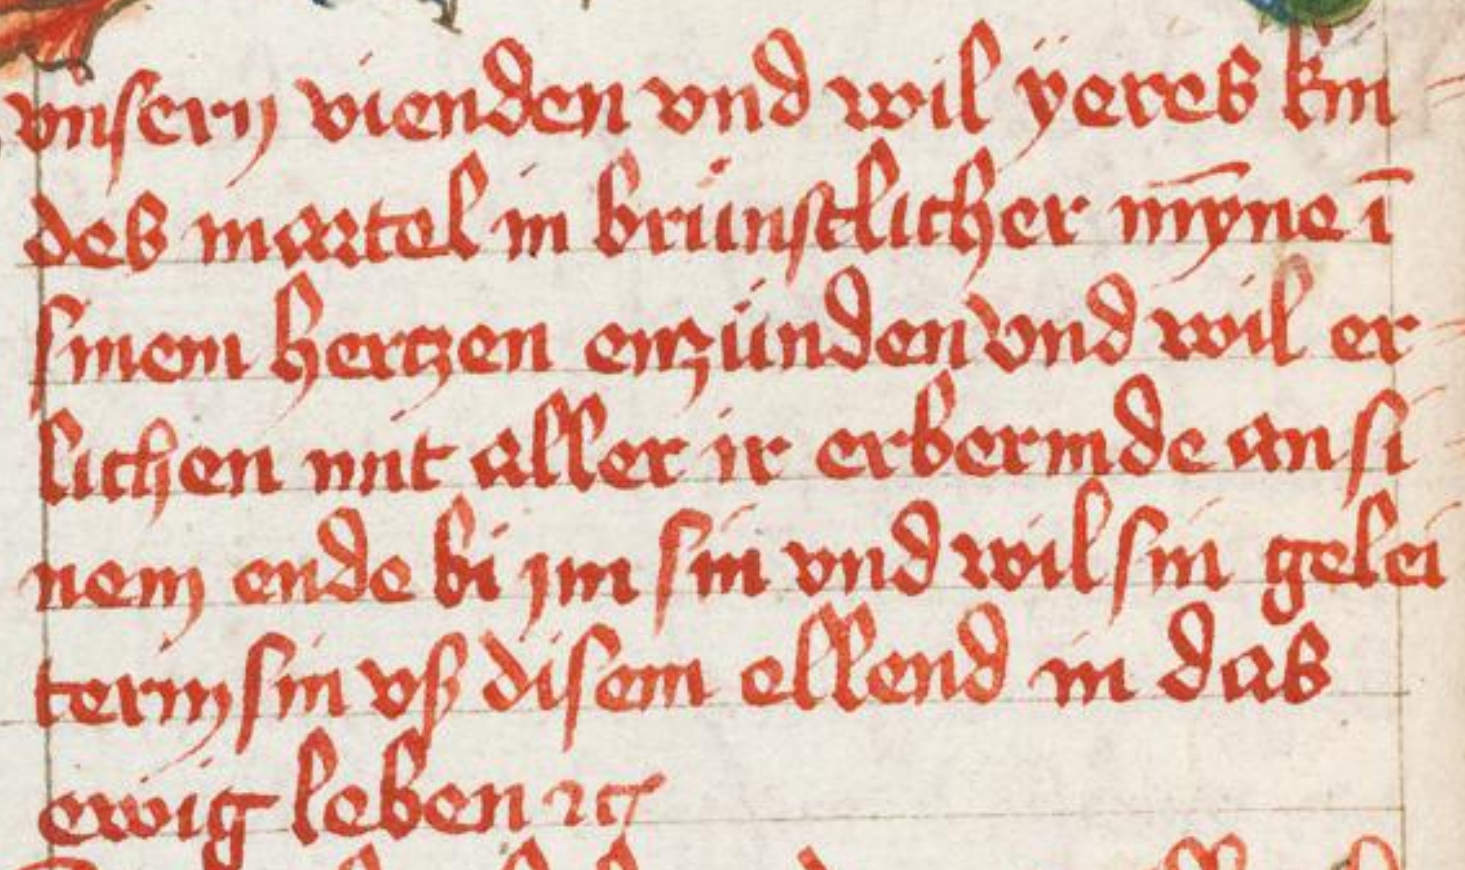 vnsern vienden vnd wil ÿeres kin
des martel in brünstlicher m̄yne ī
sinem hertzen enzünden vnd wil er
lichen mit aller ir erbermde an si
nem ende bi jm sin vnd wil sin gelei
terin sin vß disem ellend in das
ewig leben ⁊c